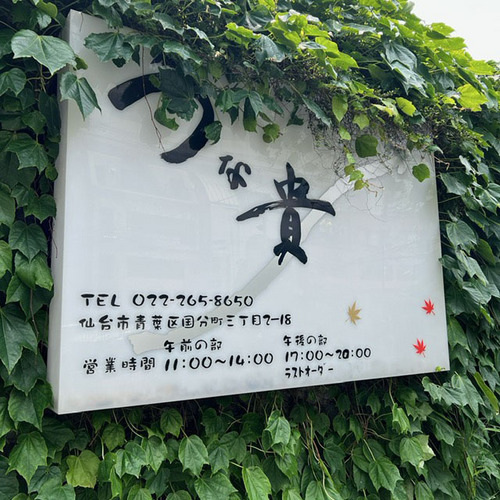 うな貴
TEL 022-265-8650
仙台市青葉区国分町三丁目2-18
午前の部 午後の部
営業時間 11:00~14:00 17:00~20:00
ラストオーダー